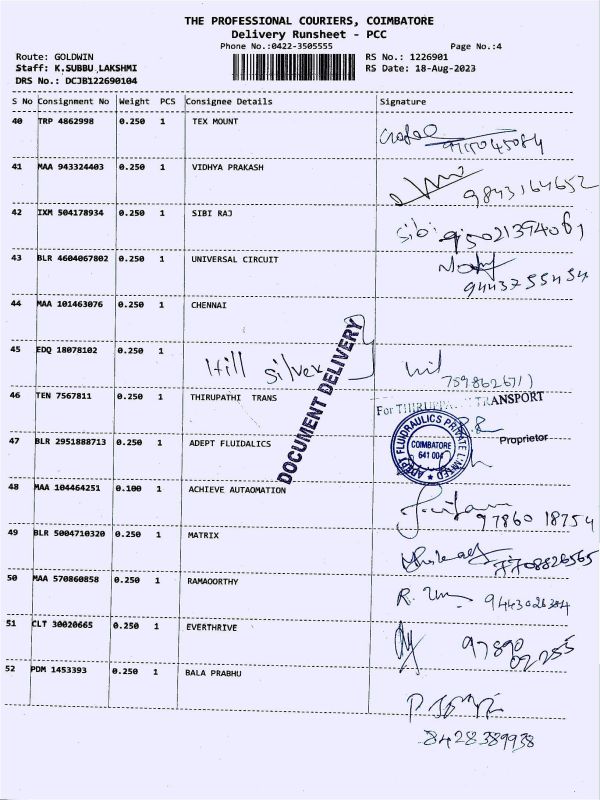 THE PROFESSIONAL COURIERS, COIMBATORE
Delivery Runsheet - PCC
Phone No.:0422-3505555 Page No.:4
Route: GOLDWIN RS No.: 1226901
Staff: K.SUBBU LAKSHMI RS Date: 18-Aug-2023
DRS No.: DCJB122690104
S No Consignment No Weight PCS Consignee Details Signature
40 TRP 4862998 0.250 1 TEX MOUNT
41 MAA 943324403 0.250 1 VIDHYA PRAKASH
9843164652
42 IXM 504178934 0.250 1 SIBI RAJ
Sibi 95021394061
43 BLR 4604067802 0.250 1 UNIVERSAL CIRCUIT
9443755454
44 MAA 101463076 0.250 1 CHENNAI
45 EDQ 18078102 0.250 1 Hill silver
7598626711
DOCUMENT DELIVERY
46 TEN 7567811 0.250 1 THIRUPATHI TRANS
For TRANSPORT
Proprietor
47 BLR 2951888713 0.250 1 ADEPT FLUIDALICS
ADEPT FLUIDRAULICS PRIVATE LIMITED
COIMBATORE
641 004
48 MAA 104464251 0.100 1 ACHIEVE AUTAOMATION
97860 18754
49 BLR 5004710320 0.250 1 MATRIX
7708826565
50 MAA 570860858 0.250 1 RAMAOORTHY
9443026384
51 CLT 30020665 0.250 1 EVERTHRIVE
97890
02255
52 PDM 1453393 0.250 1 BALA PRABHU
8428389938